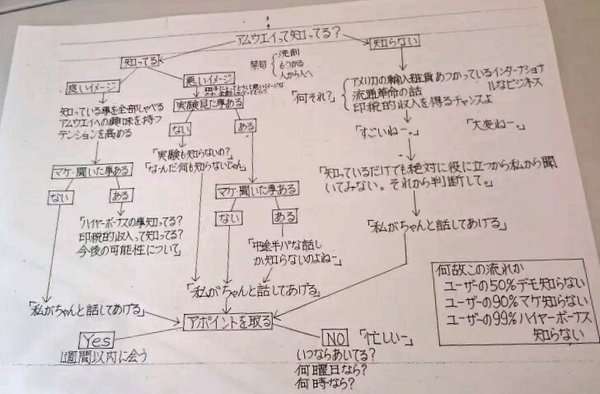 アムウエイって知ってる?
知ってる
知らない
禁句
洗剤
もうかる
人から人へ
良いイメージ
悪いイメージ
知っている事を全部しゃべる
アムウエイへの興味を持つ
テンションを高める
実験見た事ある
ない
ある
「実験も知らないの?
なーんだ何も知らないじゃん」
「何それ?」
アメリカの輸入雑貨あつかっているインターナショナルなビジネス
流通革命の話
印税的収入を得るチャンスよ
「すごいねー。」
「大変ねー。」
「知っているだけでも絶対に役に立つから私から聞いてみない。それから判断して。」
「私がちゃんと話してあげる」
マケ・聞いた事ある
ない
ある
「ハイヤーボーナスの事知ってる?
印税的収入って知ってる?
今後の可能性について」
マケ・聞いた事ある
ない
ある
「中途半パな話しか知らないのよねー」
「私がちゃんと話してあげる」
「私がちゃんと話してあげる」
アポイントを取る
Yes
1週間以内に会う
NO
「忙しいー」
いつならあいてる?
何曜日なら?
何時なら?
何故この流れか
ユーザーの50%デモ知らない
ユーザーの90%マケ知らない
ユーザーの99%ハイヤーボーナス
知らない